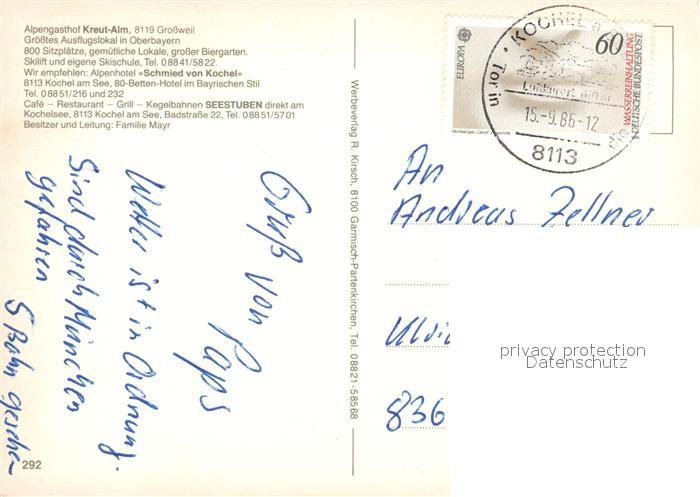 Alpengasthof Kreut-Alm, 8119 Großweil
Größtes Ausflugslokal in Oberbayern
800 Sitzplätze, gemütliche Lokale, großer Biergarten.
Skilift und eigene Skischule, Tel. 08841/5822.
Wir empfehlen: Alpenhotel »Schmied von Kochel«
8113 Kochel am See, 80-Betten-Hotel im Bayrischen Stil
Tel. 08851/216 und 232
Café – Restaurant – Grill – Kegelbahnen SEESTUBEN direkt am
Kochelsee, 8113 Kochel am See, Badstraße 22, Tel. 08851/5701
Besitzer und Leitung: Familie Mayr
Gruß von
Paps
Wetter ist in Ordnung.
Sind durch München
gefahren
S Bahn gesehe-
292
Werbeverlag R. Kirsch, 8100 Garmisch-Partenkirchen, Tel. 08821-58568
EUROPA
60
WASSERREINHALTUNG
DEUTSCHE BUNDESPOST
KOCHEL a
Tor in die
Luftkurort 610m
15.-9.86-12
8113
An
Andreas Zellner
Ulri
836
privacy protection
Datenschutz